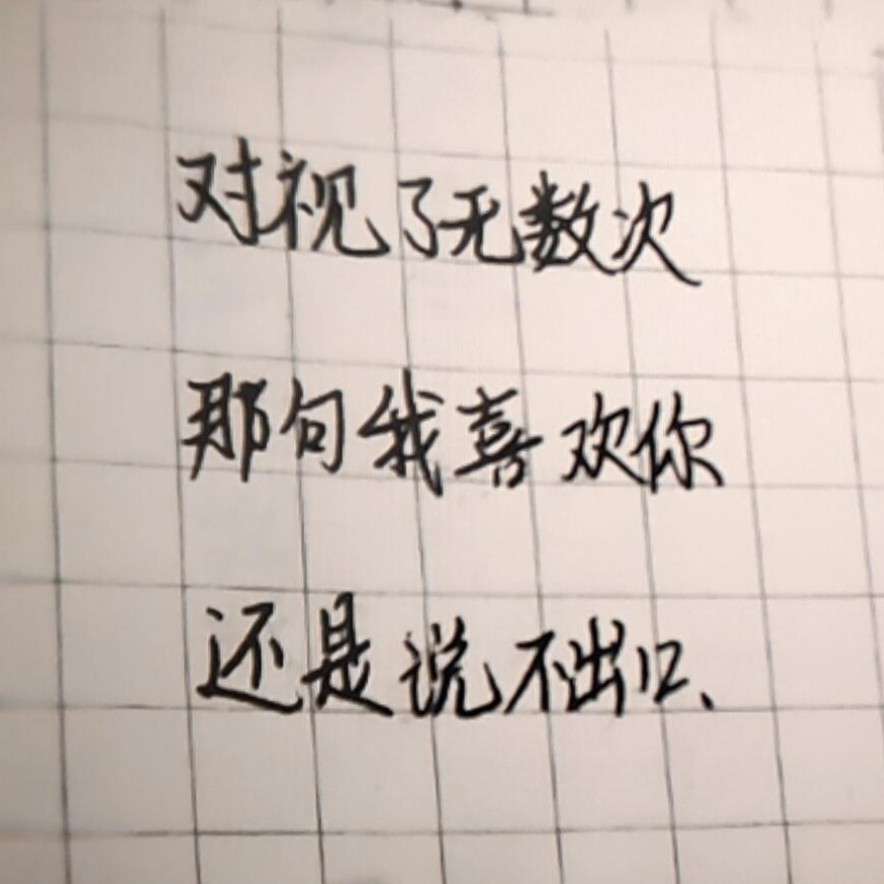 对视了无数次
那句我喜欢你
还是说不出口、